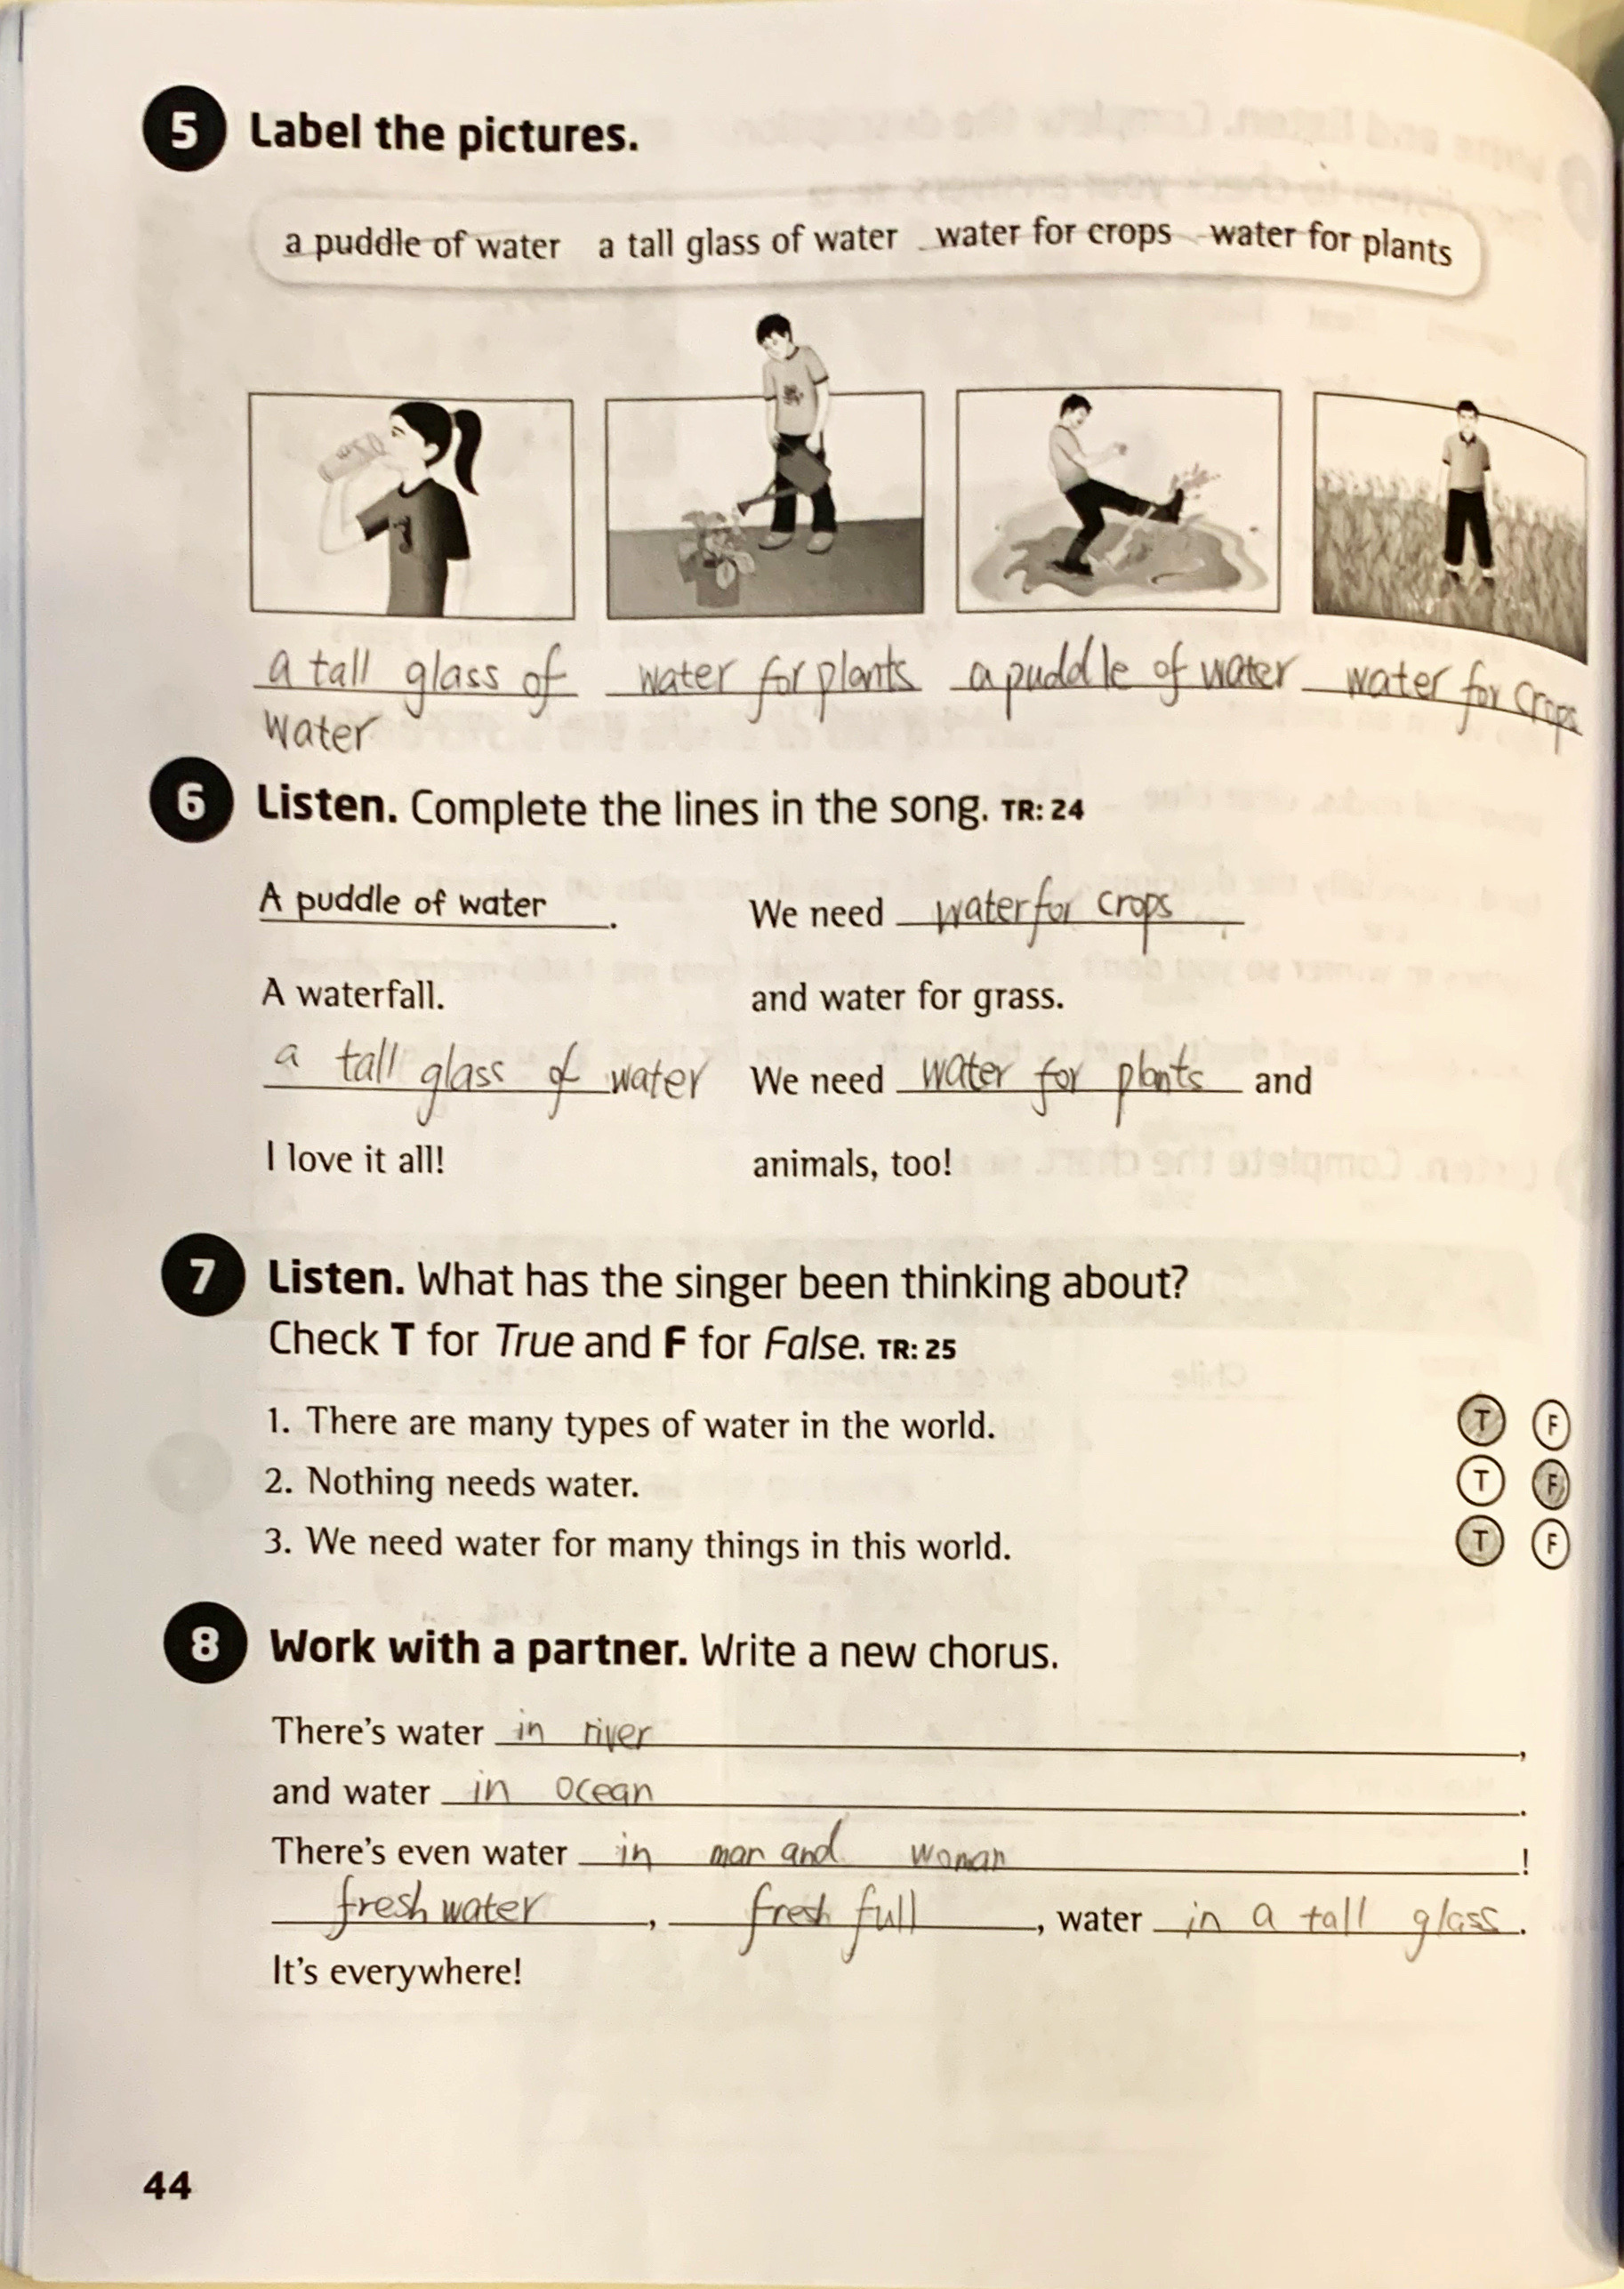 5 Label the pictures.
a puddle of water a tall glass of water water for crops water for plants
a tall glass of water
water for plants
a puddle of water
water for crops
6 Listen. Complete the lines in the song. TR: 24
A puddle of water.
A waterfall.
a tall glass of water
I love it all!
We need water for crops
and water for grass.
We need water for plants and
animals, too!
7 Listen. What has the singer been thinking about?
Check T for True and F for False. TR: 25
1. There are many types of water in the world. T F
2. Nothing needs water. T F
3. We need water for many things in this world. T F
8 Work with a partner. Write a new chorus.
There's water in river,
and water in ocean.
There's even water in man and woman!
fresh water, fresh full, water in a tall glass.
It's everywhere!
44